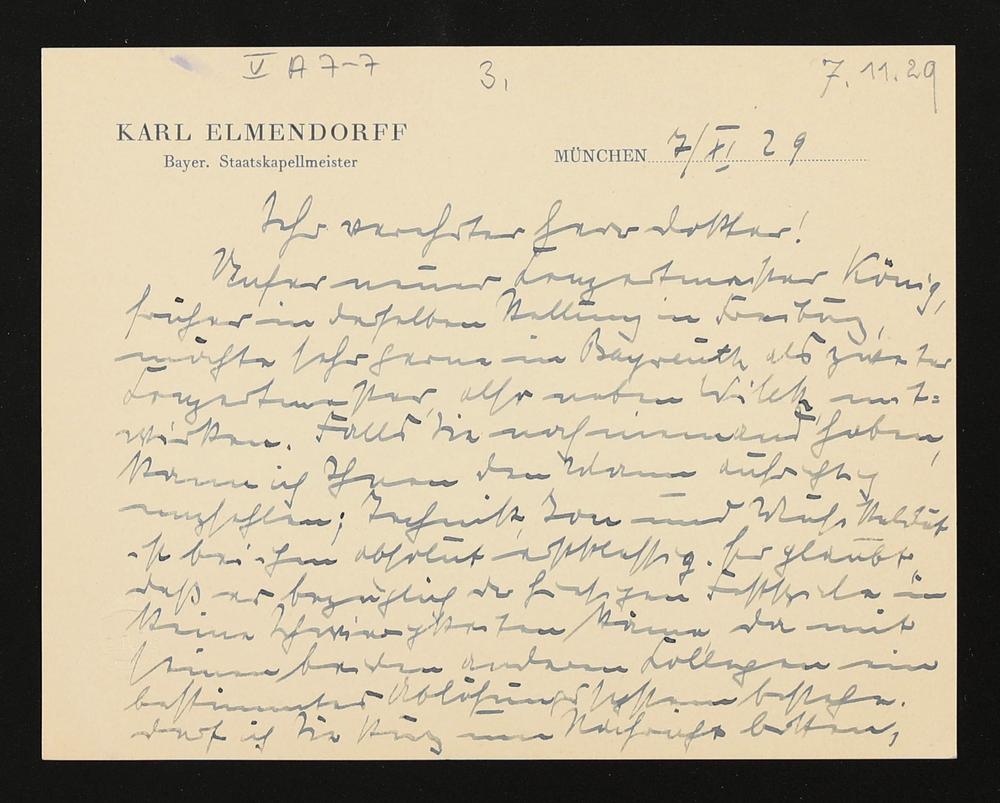 V A 7-7
3,
7.11.29
KARL ELMENDORFF
Bayer. Staatskapellmeister
MÜNCHEN 7/XI 29
Sehr verehrter Herr Doktor!
Unser neuer Conzertmeister König,
früher in derselben Stellung in Freiburg,
möchte sehr gerne in Bayreuth als zweiter
Conzertmeister, also neben Wilck mit=
wirken. Falls Sie noch niemand haben,
kann ich Ihnen den Mann aufrichtig
empfehlen; Technik, Ton und Musikalität
ist bei ihm absolut erstklassig. Er glaubt,
daß er bezüglich der hiesigen Festspiele in
keine Schwierigkeiten käme, da mit
seinen beiden anderen Collegen ein
bestimmtes Ablösungssystem bestehe.
Darf ich Sie kurz um Nachricht bitten,